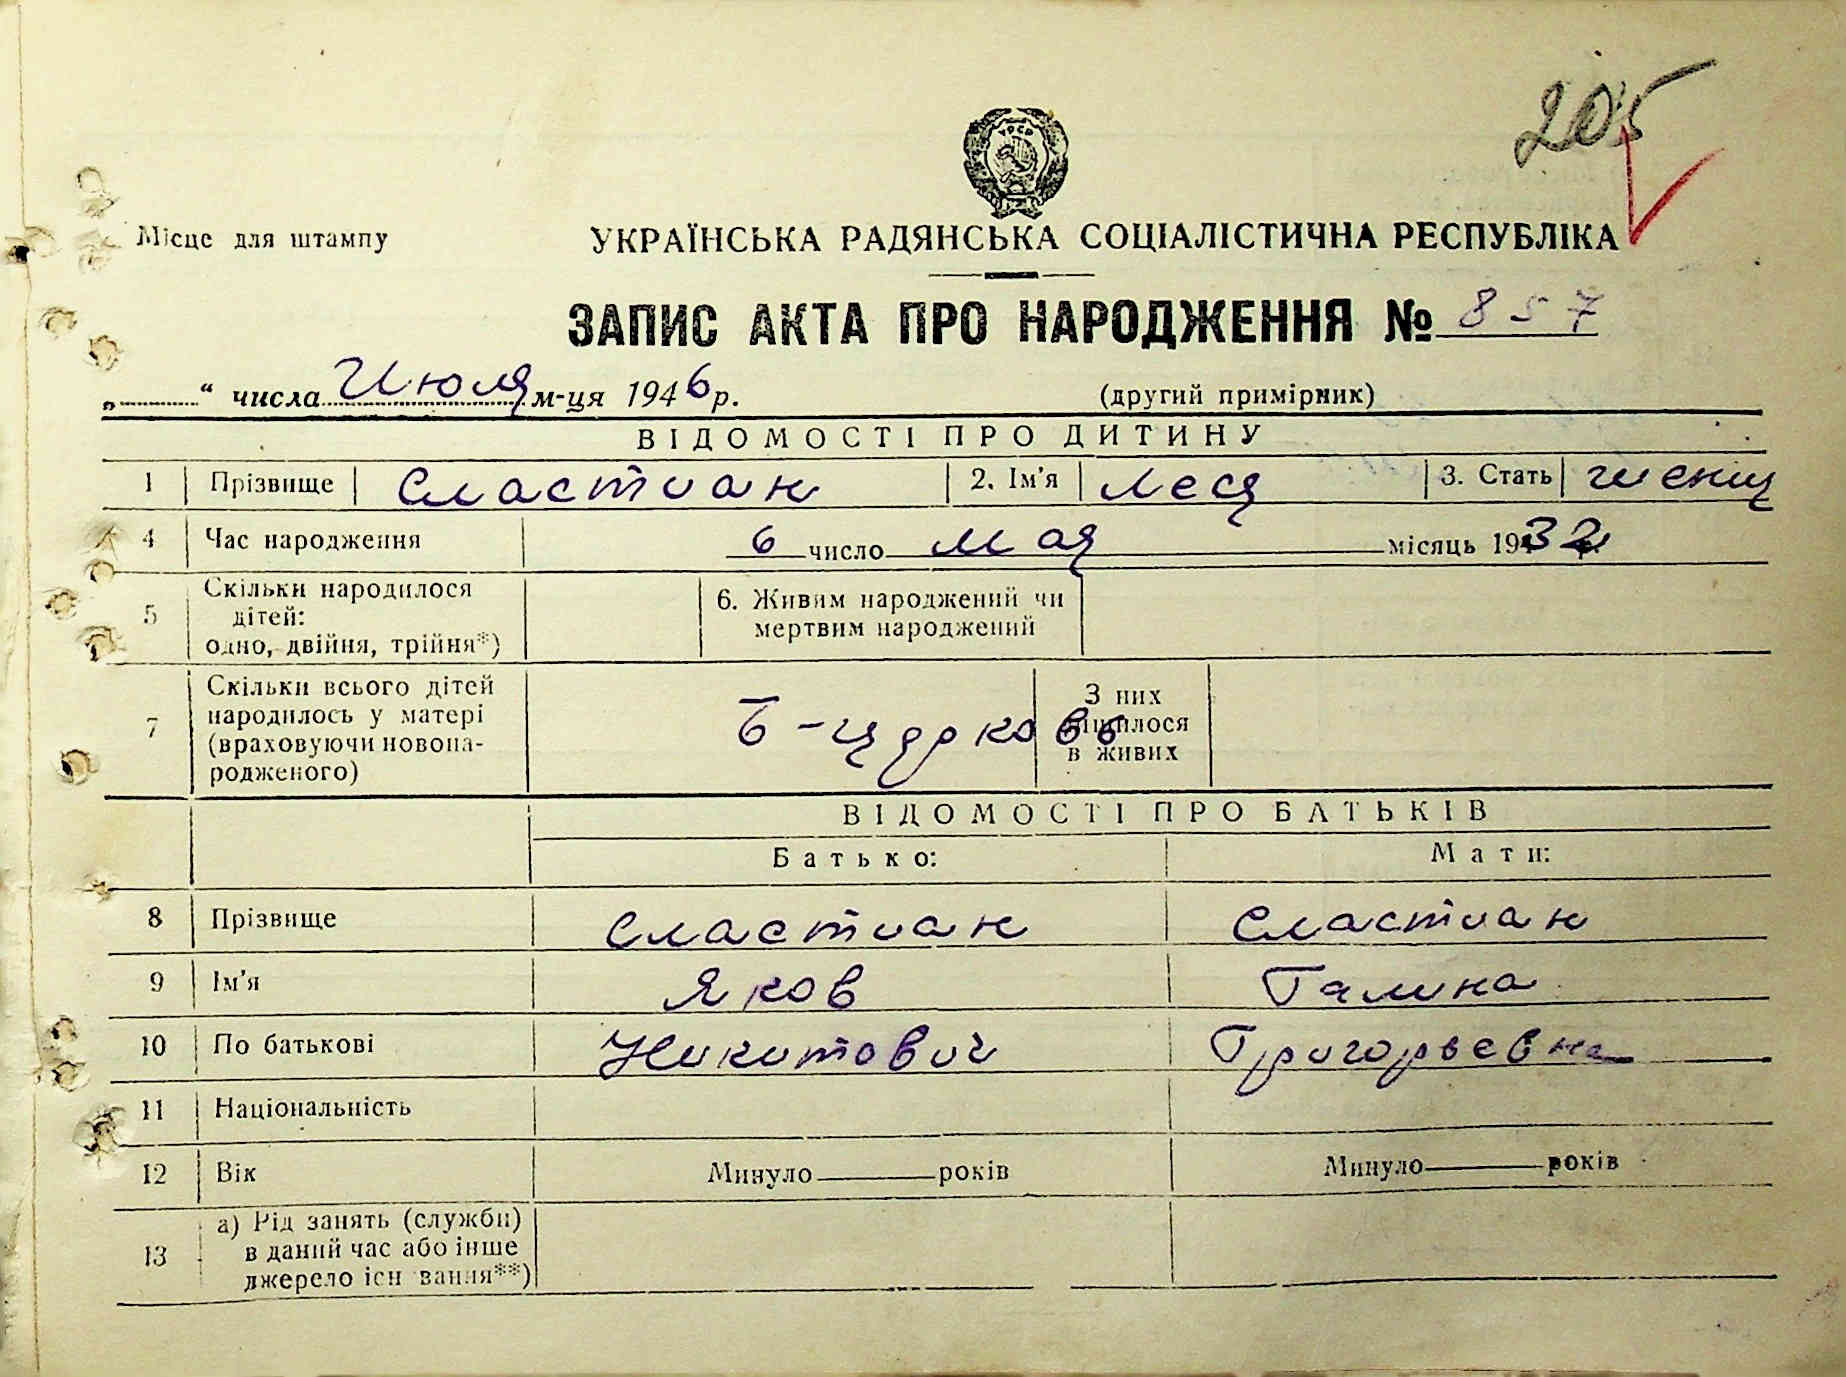 205
УРСР
Місце для штампу
УКРАЇНСЬКА РАДЯНСЬКА СОЦІАЛІСТИЧНА РЕСПУБЛІКА
ЗАПИС АКТА ПРО НАРОДЖЕННЯ № 857
„ “ числа Июля м-ця 1946 р. (другий примірник)
ВІДОМОСТІ ПРО ДИТИНУ
1 Прізвище Сластиан 2. Ім'я Леся 3. Стать женщ
4 Час народження 6 число мая місяць 1932
5 Скільки народилося дітей: одно, двійня, трійня*) 6. Живим народжений чи мертвим народжений
7 Скільки всього дітей народилось у матері (враховуючи новонародженого) Б-церковь З них лишилося в живих
ВІДОМОСТІ ПРО БАТЬКІВ
Батько: Мати:
8 Прізвище Сластиан Сластиан
9 Ім'я Яков Галина
10 По батькові Никитович Григорьевна
11 Національність
12 Вік Минуло років Минуло років
13 а) Рід занять (служби)
в даний час або інше
джерело існування**)